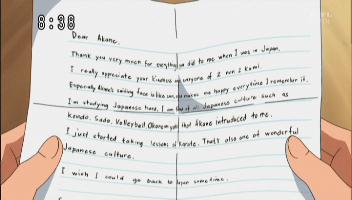 8:38
Dear Akane.
Thank you very much for everything you did to me when I was in Japan.
I really appreciate your kindness and everyone of 2 nen 2 kumi.
Especially Akane's smiling face is like sun, and makes me happy everytime I remember it.
I'm studying Japanese here. I am fond of Japanese culture such as
Kendo, Sado, Volleyball, Okonomiyaki that Akane introduced to me.
I just started taking lessons of karate. That's also one of wonderful
Japanese culture.
I wish I could go back to Japan sometime.